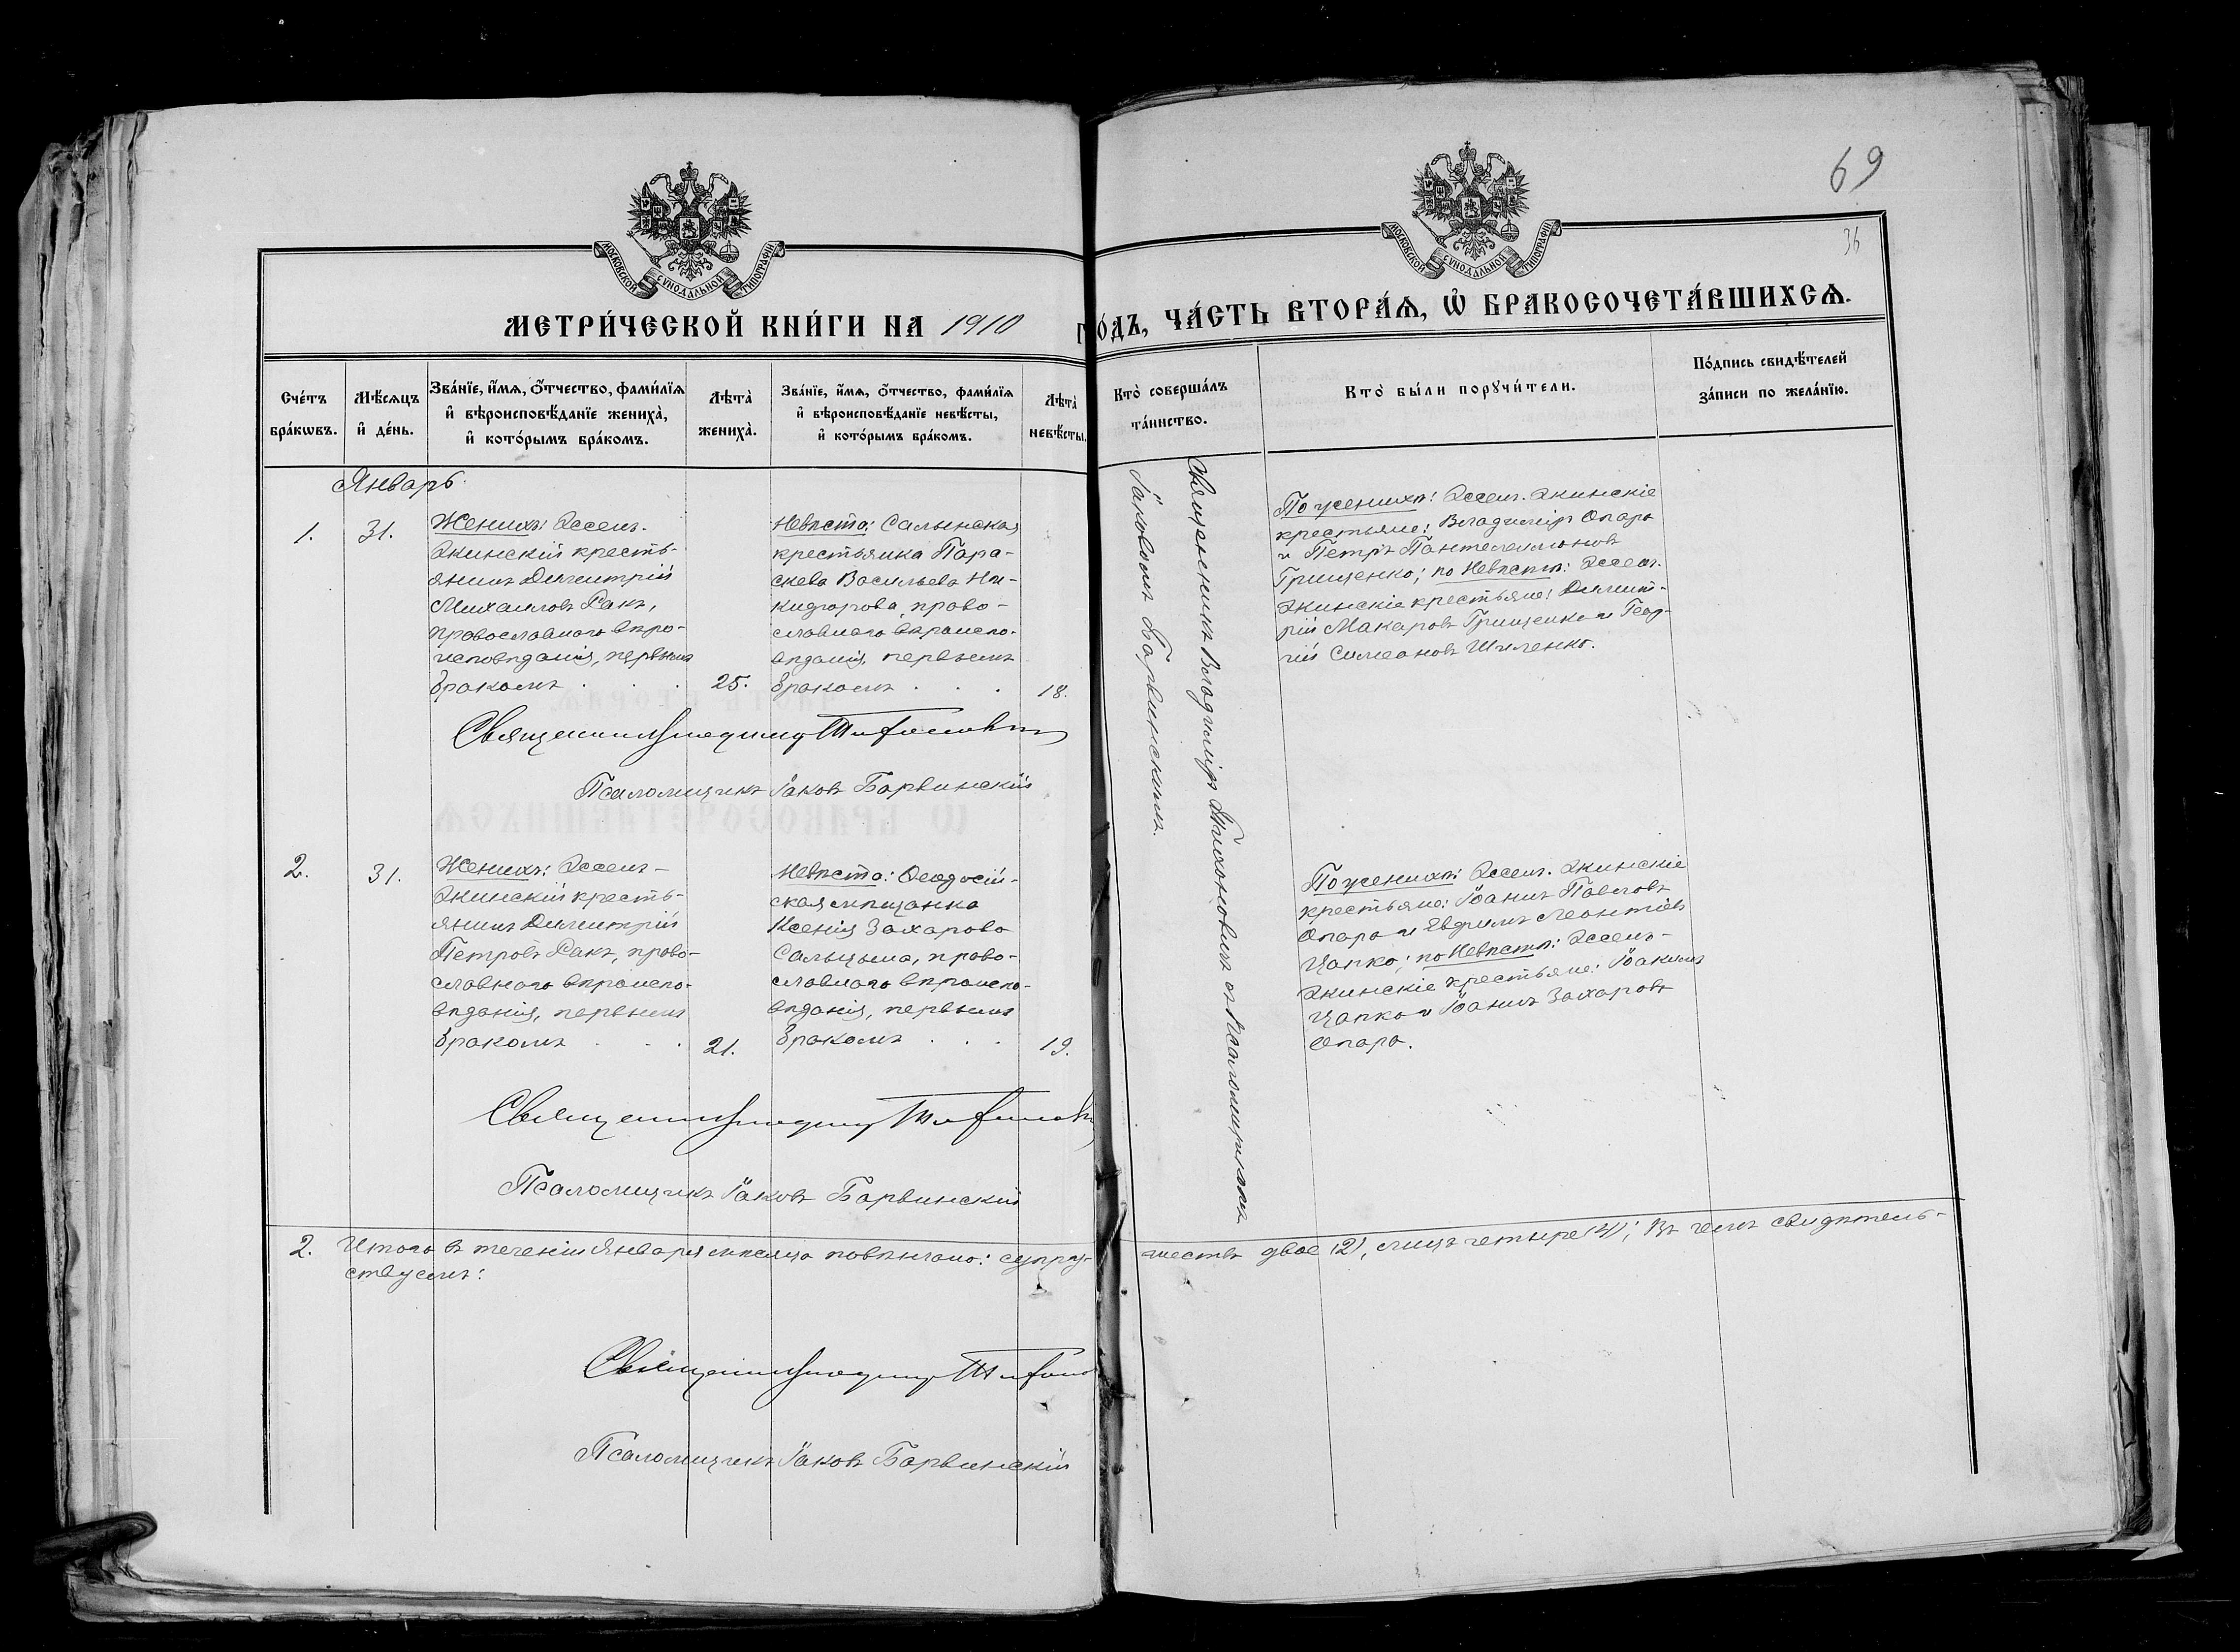 69
36
МОСКОВСКОЙ СѴНОДАЛЬНОЙ ТИПОГРАФІИ
МОСКОВСКОЙ СѴНОДАЛЬНОЙ ТИПОГРАФІИ
МЕТРИ́ЧЕСКОЙ КНИ́ГИ НА 1910 ГО́ДЪ, ЧА́СТЬ ВТОРА́Ѧ, Ѽ БРАКОСОЧЕТА́ВШИХСѦ.
Сче́тъ
бра́кѡвъ.
Мѣ́сѧцъ
и҆ де́нь.
Зва́нїе, и҆́мѧ, ѻ҆́тчество, фами́лїѧ
и҆ вѣроисповѣ́данїе жениха̀,
и҆ кото́рымъ бра́комъ.
Лѣта̀
жениха̀.
Зва́нїе, и҆́мѧ, ѻ҆́тчество, фами́лїѧ
и҆ вѣроисповѣ́данїе невѣ́сты,
и҆ кото́рымъ бра́комъ.
Лѣта̀
невѣ́сты.
Кто̀ соверша́лъ
та́инство.
Кто̀ бы́ли порꙋчи́тели.
По́дпись свидѣ́телей
за́писи по жела́нїю.
Январь.
1.
31.
Женихъ: Ассам-
Экинскій кресть-
янинъ Димитрій
Михаиловъ Ракъ,
православнаго вѣро-
исповѣданія, первымъ
бракомъ . . .
25.
Невѣста: Салынская
крестьянка Пара-
скева Васильева Ни-
кифорова, право-
славнаго вѣроиспо-
вѣданія, первымъ
бракомъ . . .
18.
Священникъ Владиміръ Тихоновичъ съ Псаломщикомъ
Іаковомъ Барвинскимъ.
По женихѣ: Экинскіе
крестьяне: Владиміръ Опара
и Петръ Пантелеимоновъ
Грищенко; по Невѣстѣ:
Экинскіе крестьяне: Димит-
рій Макаровъ Грищенко и Геор-
гій Симеоновъ Шиленко.
Священникъ Владиміръ Тихоновичъ
Псаломщикъ Іаковъ Барвинскій
2.
31.
Женихъ:
Экинскій кресть-
янинъ Димитрій
Петровъ Ракъ, право-
славнаго вѣроиспо-
вѣданія, первымъ
бракомъ . . .
21.
Невѣста: Ѳеодосій-
ская мѣщанка
Ксенія Захарова
Сальцына, право-
славнаго вѣроиспо-
вѣданія, первымъ
бракомъ . . .
19.
По женихѣ: Экинскіе
крестьяне: Іоаннъ Павловъ
Опара и Евфимъ Леонтіевъ
Цапко; по Невѣстѣ:
Экинскіе крестьяне: Іоакимъ
Цапко и Іоаннъ Захаровъ
Опара.
Священникъ Владиміръ Тихоновичъ
Псаломщикъ Іаковъ Барвинскій
2. Итого въ теченіи Января мѣсяца повѣнчано: супру- жествъ двое (2), лицъ четыре (4); Въ чемъ свидѣтель-
ствуемъ:
Священникъ Владиміръ Тихоновичъ
Псаломщикъ Іаковъ Барвинскій